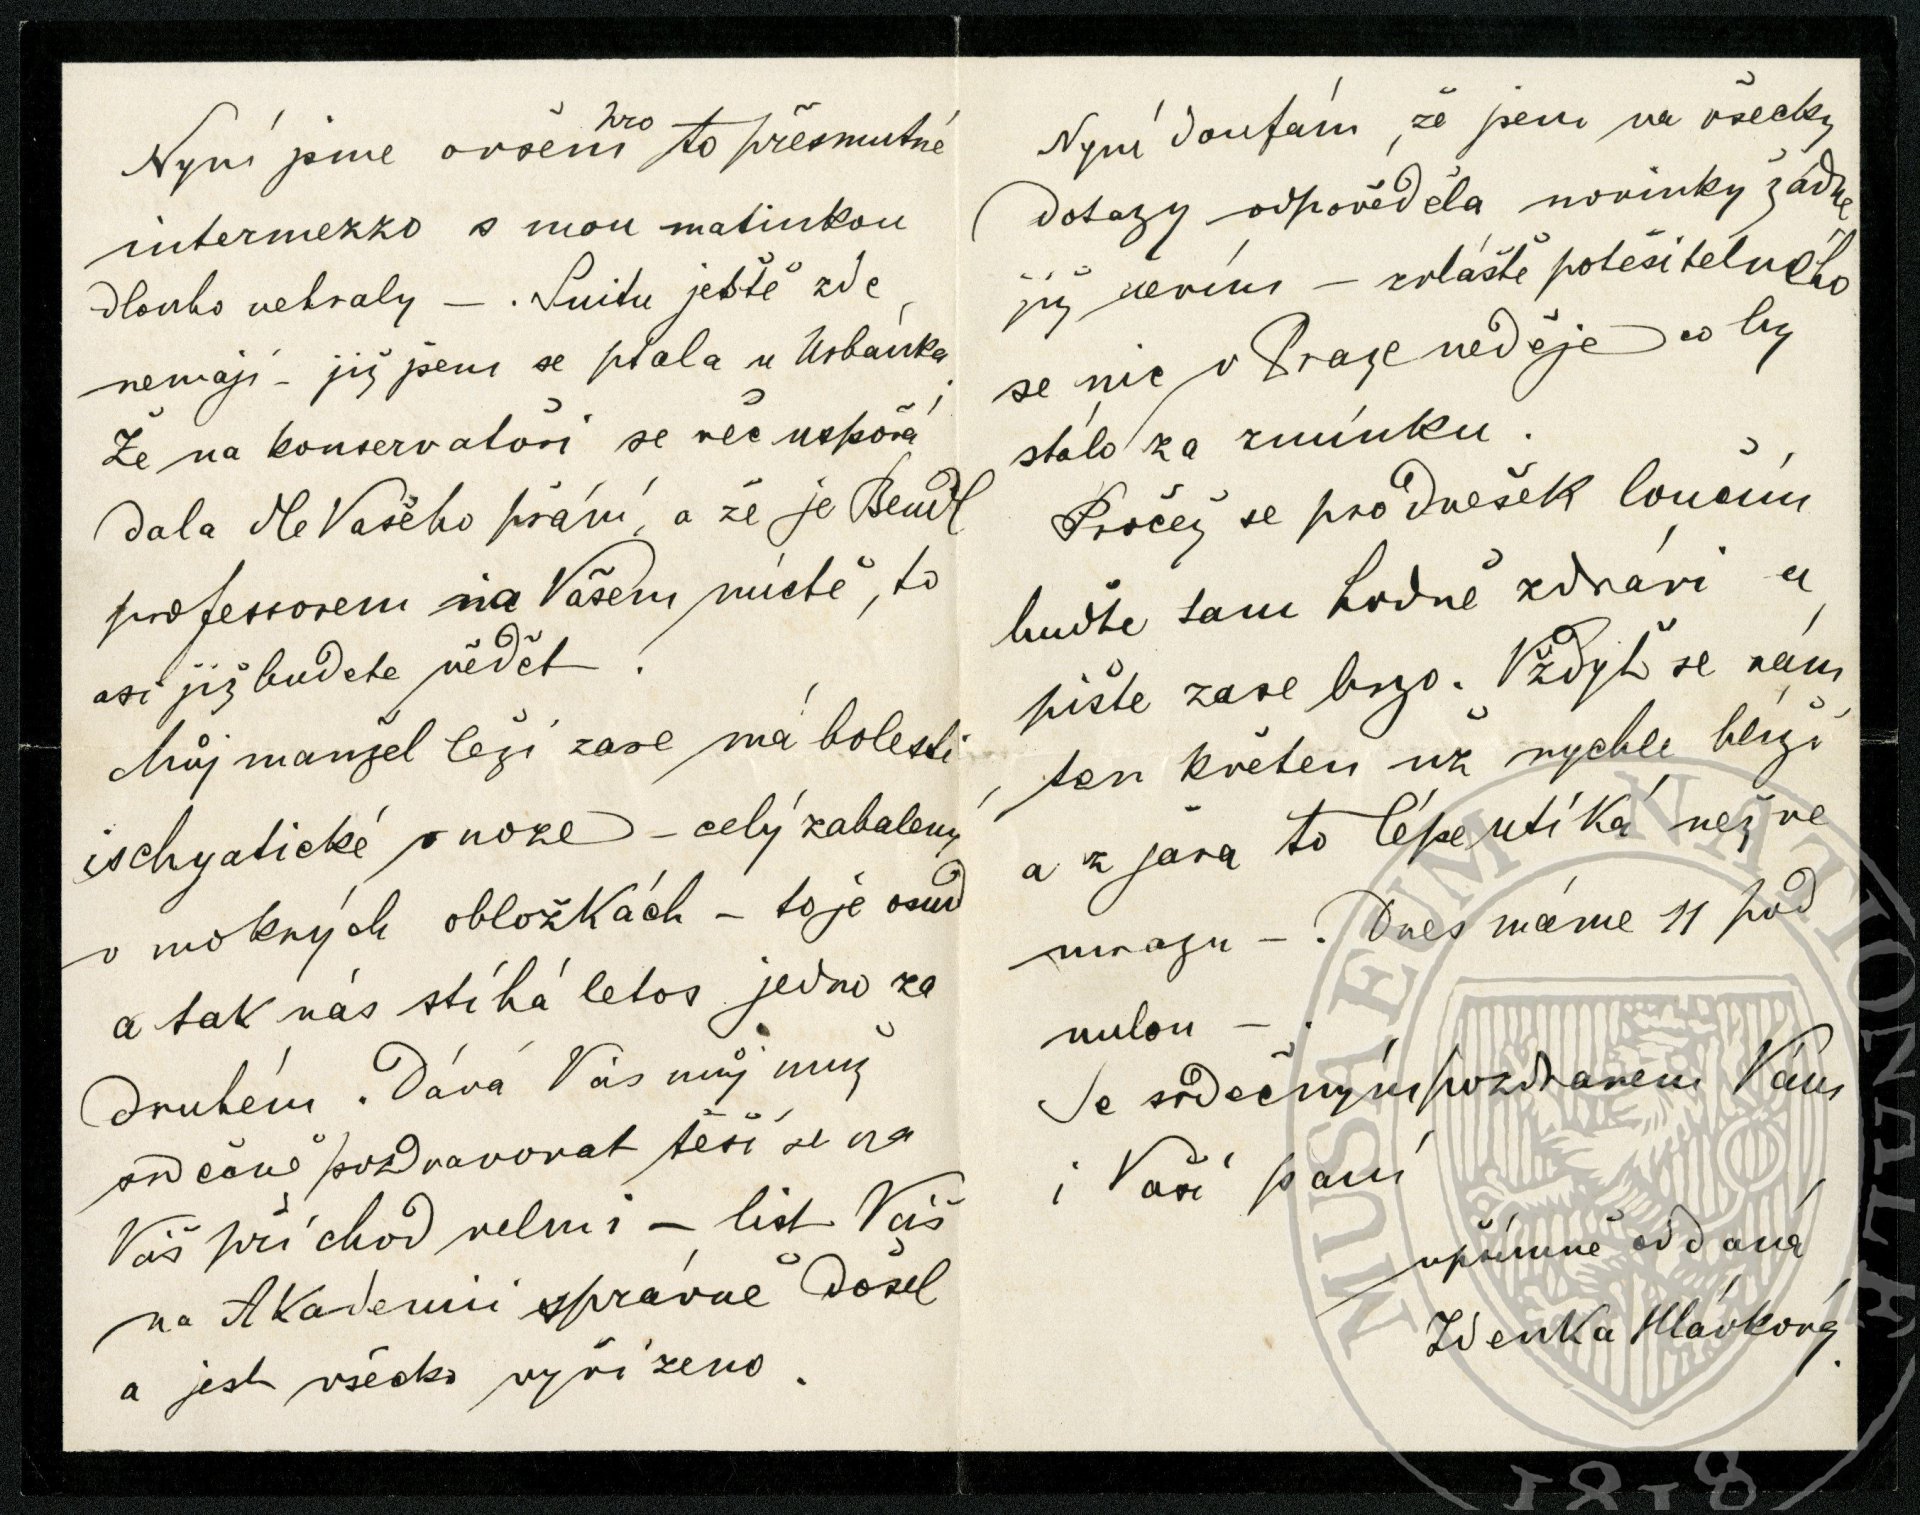 Nyní jsme ovšem pro to přesmutné
intermezzo s mou matinkou
dlouho nehraly — . Suitu ještě zde
nemají – již jsem se ptala u Urbánka,
Že na konservatoři se věc uspořá
dala dle Vašeho přání, a že je Bendl
professorem na Vašem místě, to
asi již budete vědět .
Můj manžel leží zase má bolesti
ischyatické v noze – celý zabalený
v mokrých obložkách – to je osud
a tak nás stíhá letos jedno za
druhém . Dává Vás můj muž
srdečně pozdravovat těší se na
Váš příchod velmi – list Váš
na Akademii správně došel
a jest všecko vyřízeno .
Nyní doufám, že jsem na všecky
dotazy odpověděla novinky žádné
již nevím – zvláště potěšitelného
se nic v Praze neděje co by
stálo za zmínku .
Pročež se pro dnešek loučím
buďte tam hodně zdrávi a
pište zase brzo. Vždyť se nám
ten květen už rychle blíží
a z jara to lépe utíká než ve
mrazu – . Dnes máme 11 pod
nulou – .
Se srdečným pozdravem Vám
i Vaší paní
upřímně oddaná
Zdenka Hlávková.
MUSAEUM NATIONALE
1818